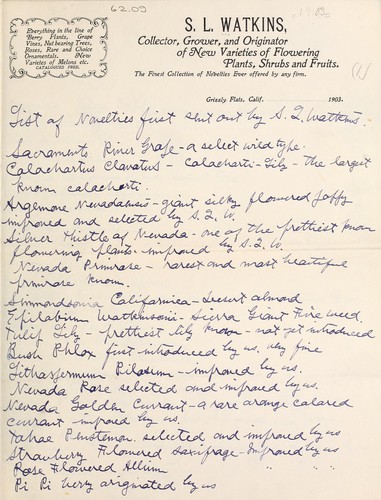 62.09
Everything in the line of
Berry Plants, Grape
Vines, Nut bearing Trees,
Roses, Rare and Choice
Ornamentals. New
Varieties of Melons etc.
CATALOGUES FREE.
S. L. WATKINS,
Collector, Grower, and Originator
of New Varieties of Flowering
Plants, Shrubs and Fruits.
The Finest Collection of Novelties Ever offered by any firm.
(1)
Grizzly Flats, Calif. 1903.
List of Novelties first sent out by S. L. Watkins.
Sacramento River Grape - a select wild type.
Calachortus Clavatus - Calachorti-Lily - the largest
known calachorti.
Argemone Nevadaensis - giant silky flowered Poppy
improved and selected by S. L. W.
Silver Thistle of Nevada - one of the prettiest known
flowering plants - improved by S. L. W.
Nevada Primrose - rarest and most beautiful
primrose known.
Simmondsonia Californica - desert almond
Epilobium Watkinsonii - Sierra Giant Fire weed.
Tulip Lily - prettiest lily known - not yet introduced
Bush Phlox first introduced by us. very fine
Lithospermum Pilosum - improved by us.
Nevada Rose selected and improved by us.
Nevada Golden Currant - a rare orange colored
currant improved by us.
Tahoe Penstemon. selected and improved by us
Strawberry Flowered Saxifrage - Improved by us
Rose Flowered Allium " " "
Pi Pi berry originated by us